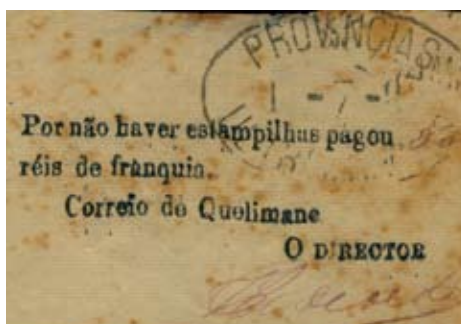 PROVINCIA
1 - 7 -
Por não haver estampilhas pagou 50
réis de franquia.
Correio de Quelimane
O DIRECTOR